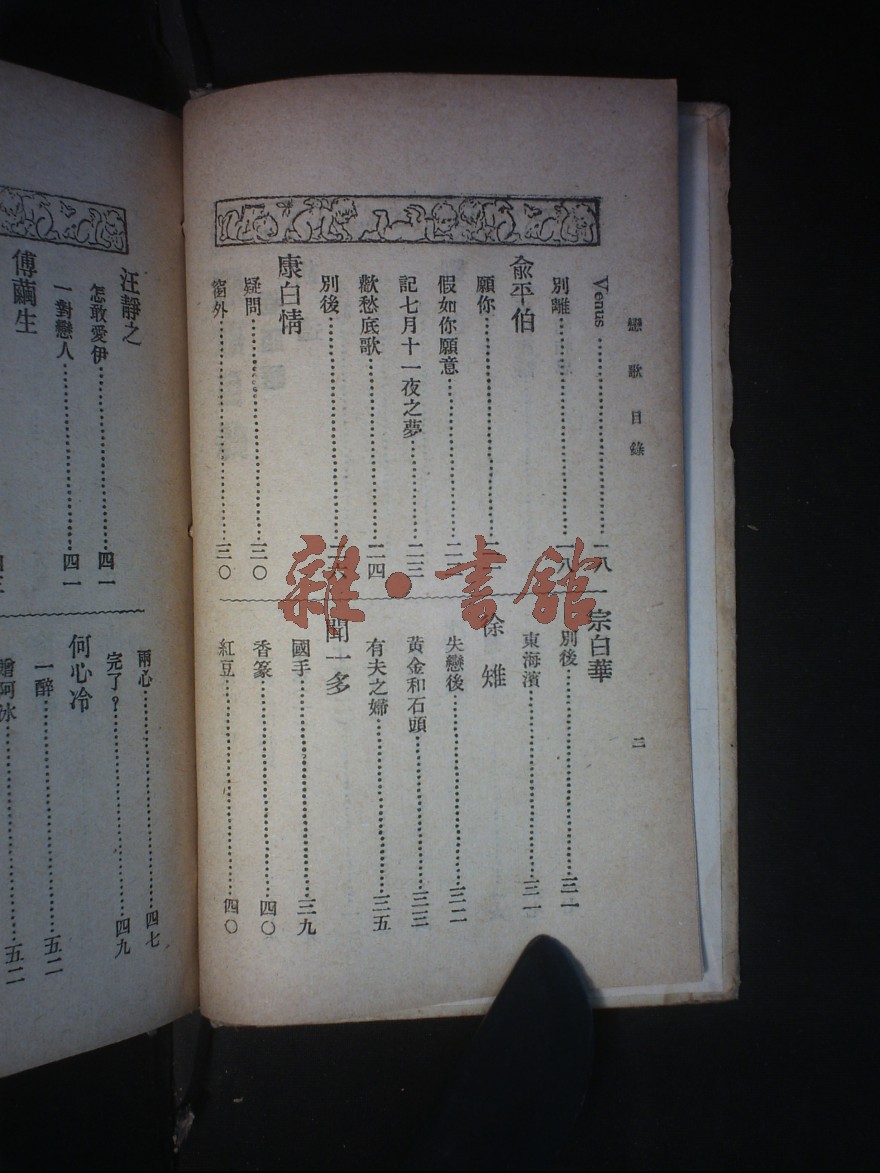 戀歌目錄
Venus……一八
別離……一八
俞平伯
願你……
假如你願意……二二
記七月十一夜之夢……二三
歡愁底歌……二四
別後……二六
康白情
疑問……三〇
窗外……三〇
宗白華
別後……三一
東海濱……三一
徐雉
失戀後……三二
黃金和石頭……三三
有夫之婦……三五
聞一多
國手……三九
香篆……四〇
紅豆……四〇
二
汪靜之
怎敢愛伊……四一
一對戀人……四一
傅繭生
兩心……四七
完了？……四九
何心冷
一醉……五二
贈阿冰……五二
雜·書館